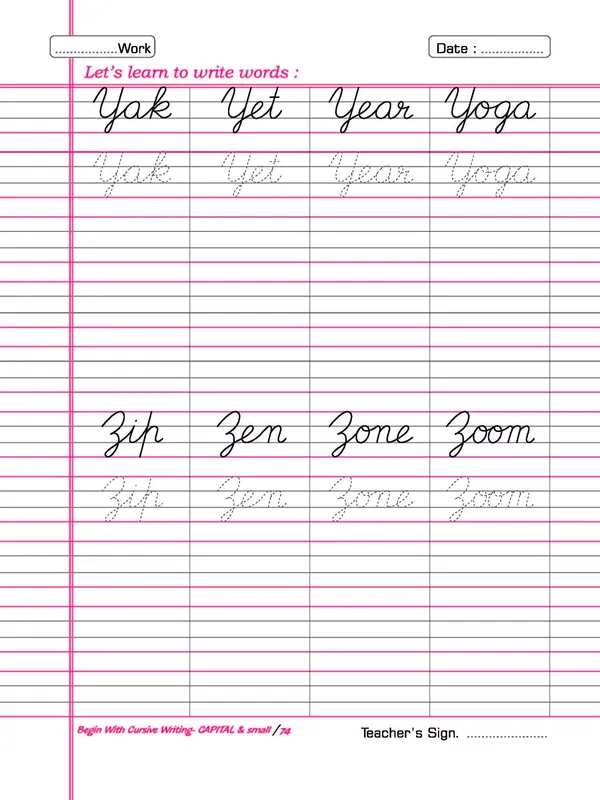 .................Work
Date : .................
Let's learn to write words :
Yak Yet Year Yoga
Yak Yet Year Yoga
Zip Zen Zone Zoom
Zip Zen Zone Zoom
Begin With Cursive Writing- CAPITAL & small /74
Teacher's Sign. ......................